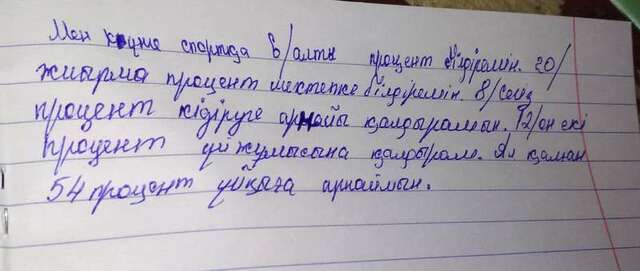 Мен күніне спортқа 6/алты процент бөлдіремін. 20/
жиырма процент мектепке бөлдіремін. 8/сегіз
процент кідіруге арнайы қалдырамын. 12/он екі
процент үй жумысына қалдырам. Ал қалған
54 процент ұйқыға арнаймын.